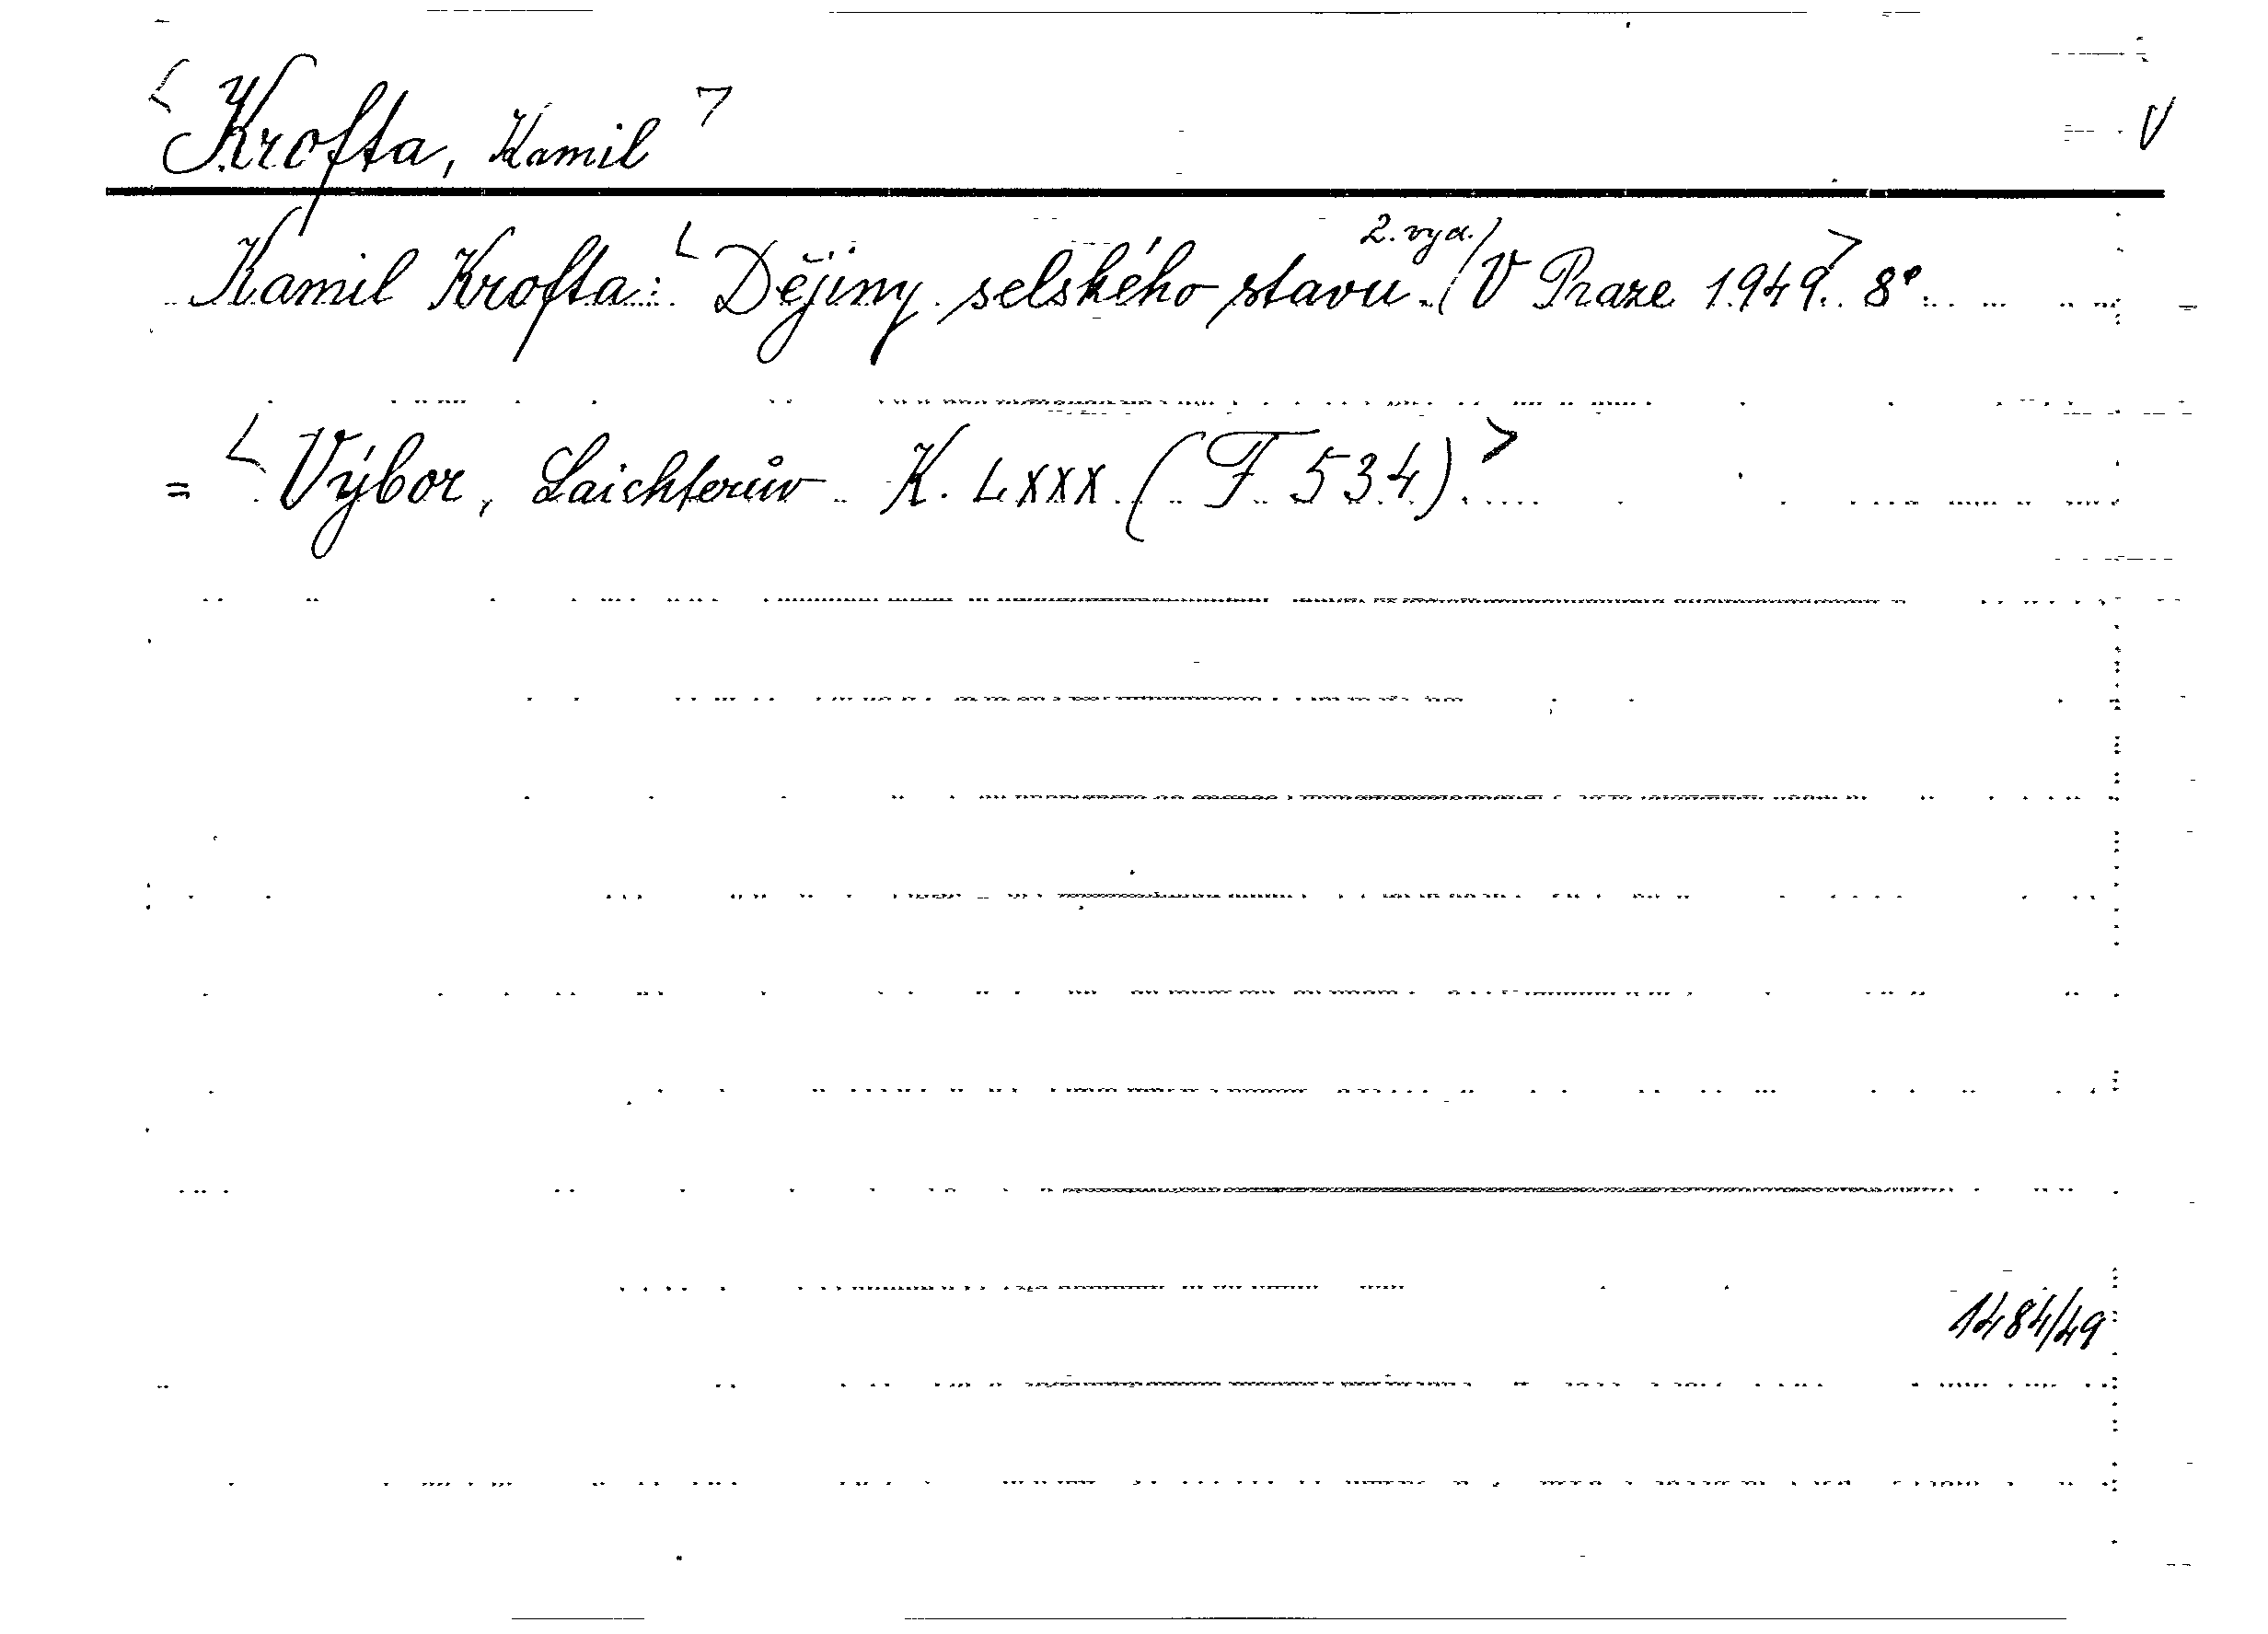 <Krofta, Kamil> V
Kamil Krofta: <Dějiny selského stavu. /2. vyd./ V Praze 1949.> 8°.
= <Výbor, Laichterův K. LXXX (F 534).>
1484/49